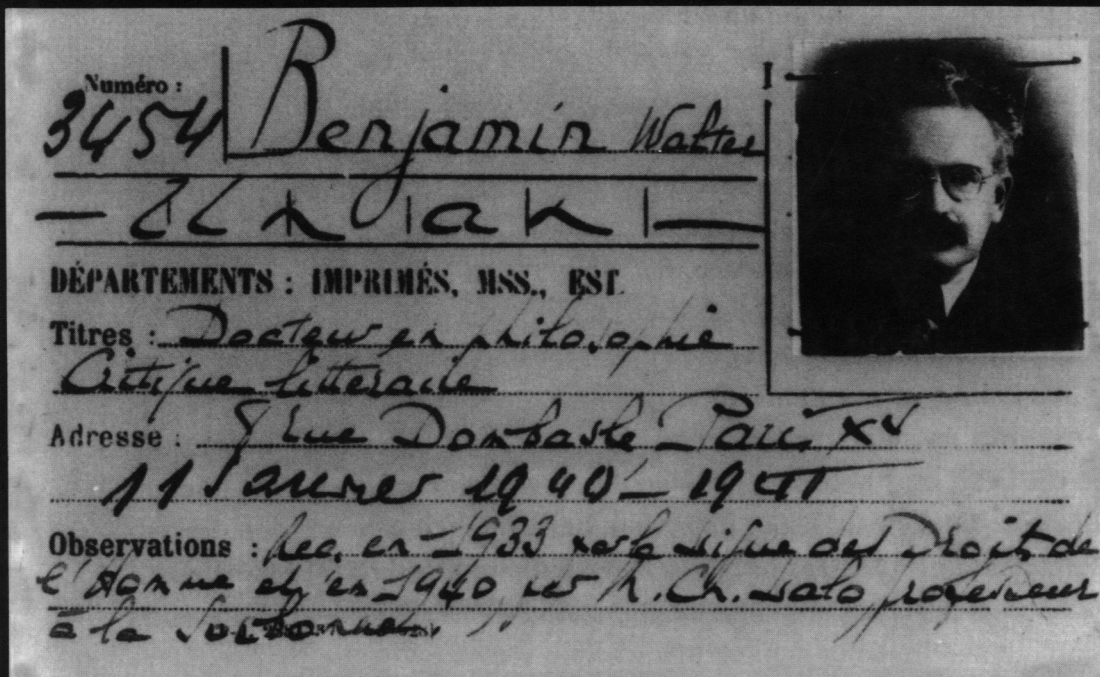 Numéro :
3454 Benjamin Walter
DÉPARTEMENTS : IMPRIMÉS, MSS., EST.
Titres : Docteur en philosophie
Critique litteraire
Adresse : rue Dombasle Paris XV
11 Janvier 1940 - 1941
Observations : Rec. en 1933 par la Ligue des Droits de
l'Homme et en 1940 par M. Ch. Lalo professeur
à la Sorbonne.